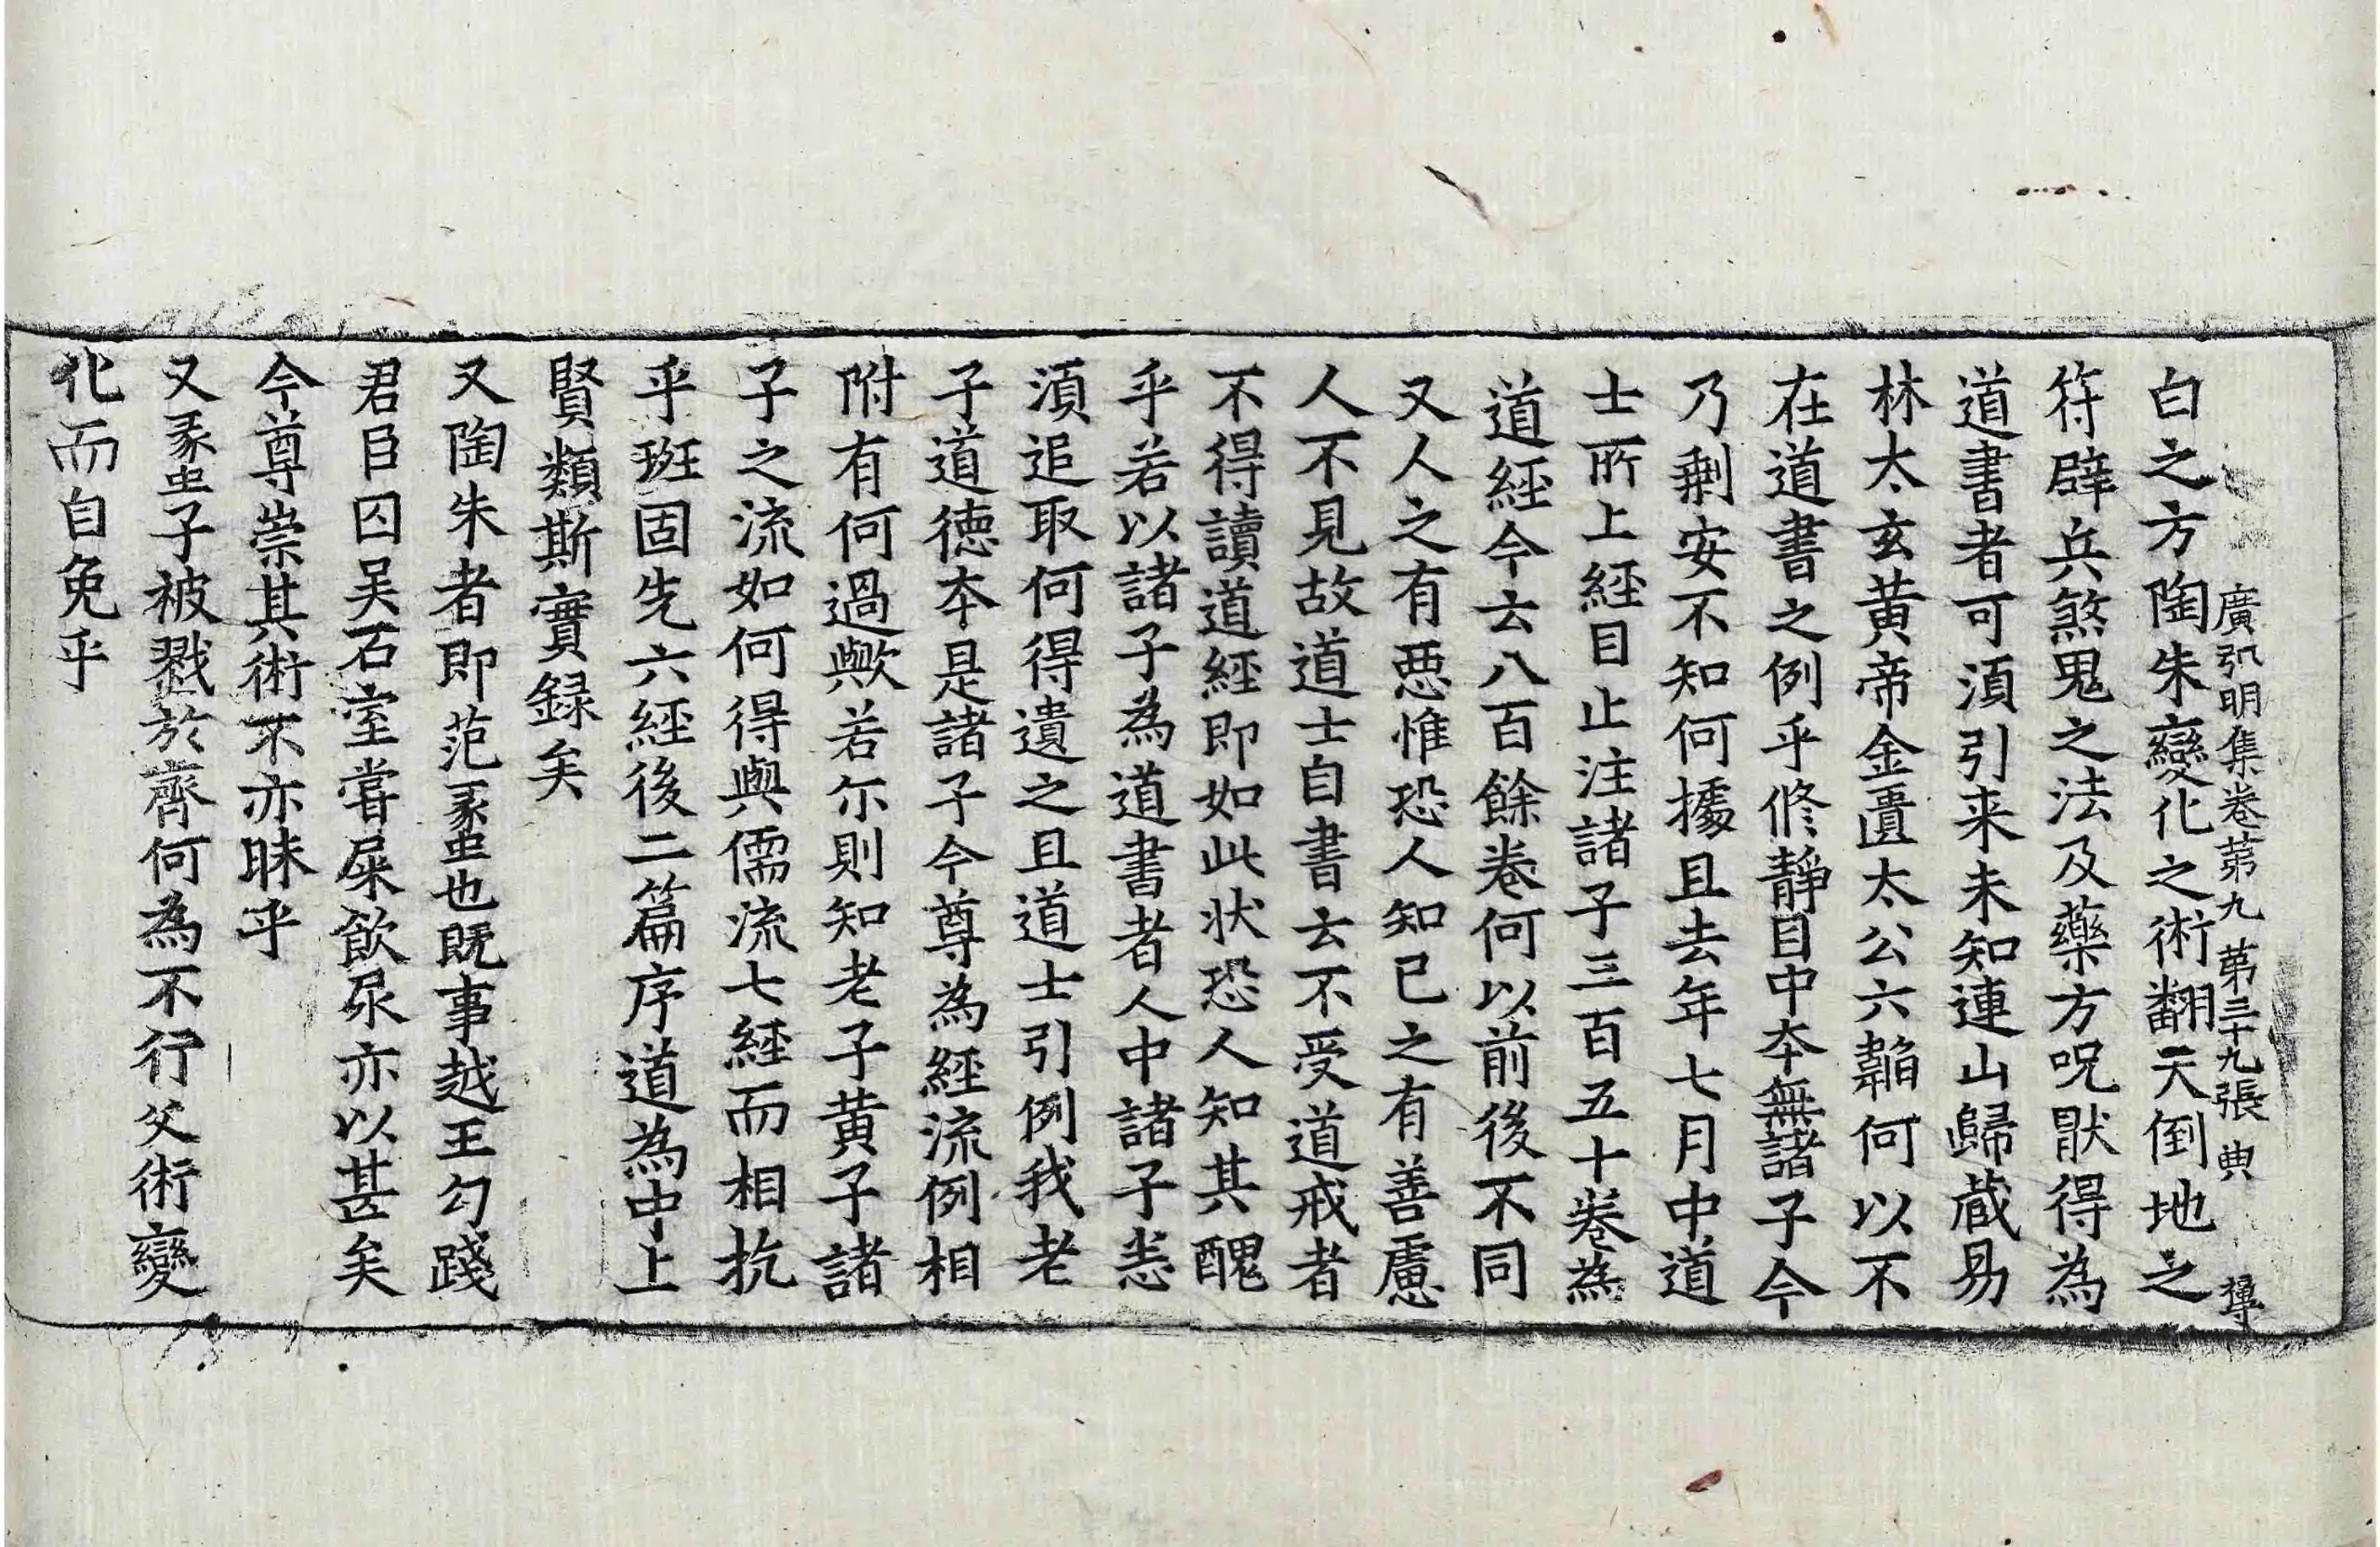 廣弘明集卷第九 第三十九張 典
白之方陶朱變化之術翻天倒地之
符辟兵煞鬼之法及藥方呪猒得為
道書者可湏引来未知連山歸蔵易
林太玄黄帝金匱太公六韜何以不
在道書之例乎修静目中夲無諸子今
乃剰安不知何據且去年七月中道
士所上経目止注諸子三百五十卷為
道経今云八百餘卷何以前後不同
又人之有悪惟恐人知已之有善慮
人不見故道士自書云不受道戒者
不得讀道経即如此状恐人知其醜
乎若以諸子為道書者人中諸子悉
湏追取何得遺之且道士引例我老
子道徳夲是諸子今尊為経流例相
附有何過歟若尓則知老子黄子諸
子之流如何得與儒流七経而相抗
乎班固先六経後二篇序道為中上
賢類斯實録矣
又陶朱者即范蠡也既事越王勾踐
君臣囚吴石室甞屎飲尿亦以甚矣
今尊崇其術不亦昧乎
又蠡子被戮於齊何為不行父術變
化而自免乎